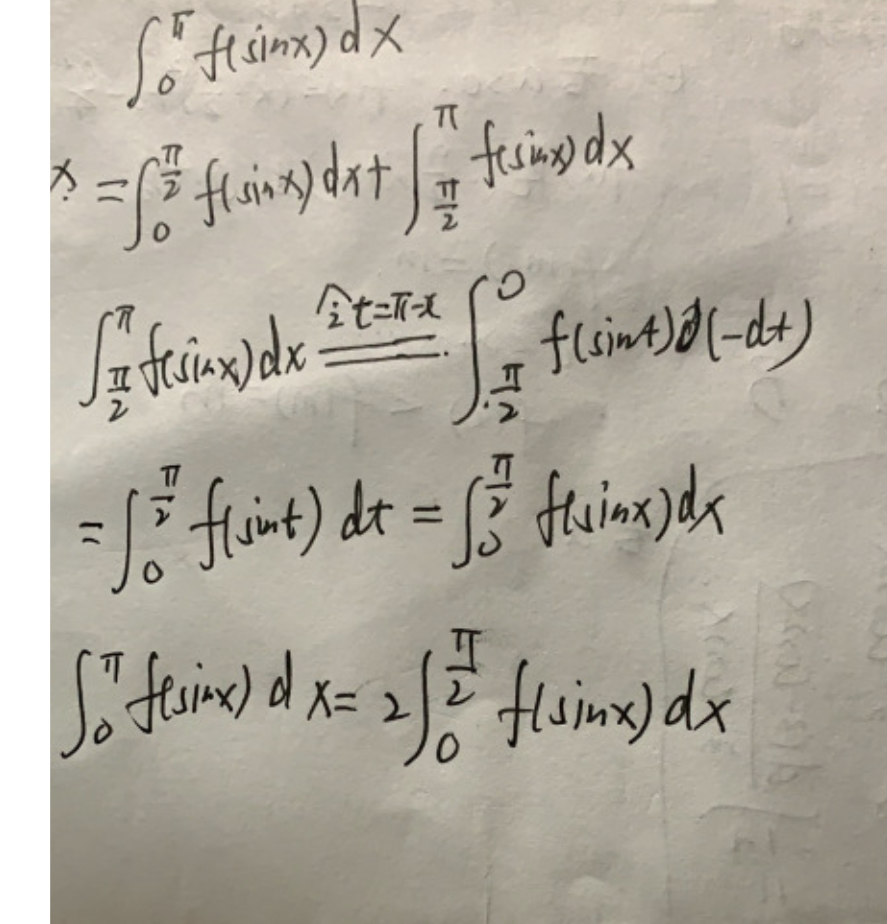 ∫₀^π f(sinx) dx
= ∫₀^{π/2} f(sinx) dx + ∫_{π/2}^π f(sinx) dx
∫_{π/2}^π f(sinx) dx \overset{令t=π-x}{=} ∫_{π/2}^0 f(sint) (-dt)
= ∫₀^{π/2} f(sint) dt = ∫₀^{π/2} f(sinx) dx
∫₀^π f(sinx) dx = 2∫₀^{π/2} f(sinx) dx